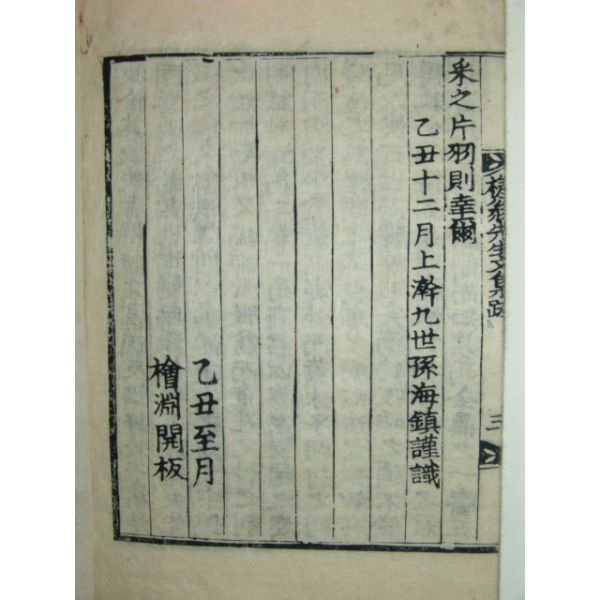 采之片羽則幸爾
乙丑十二月上澣九世孫海鎭謹識
乙丑至月
檜淵開板
先生文集跋
三